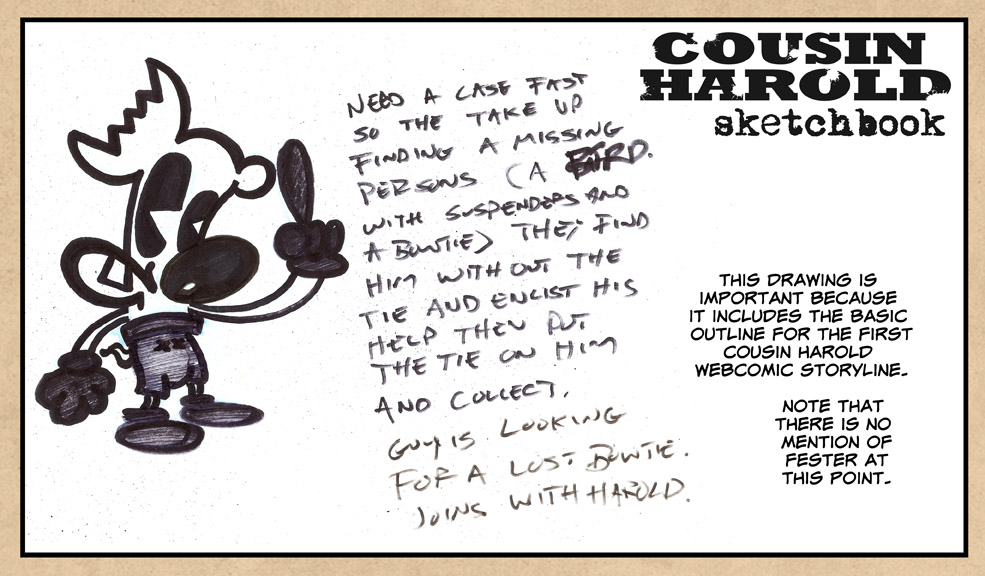 COUSIN
HAROLD
sketchbook
NEED A CASE FAST
SO THE TAKE UP
FINDING A MISSING
PERSONS (A BIRD.
WITH SUSPENDERS AND
A BOWTIE) THEY FIND
HIM WITH OUT THE
TIE AND ENLIST HIS
HELP THEN PUT
THE TIE ON HIM
AND COLLECT.
GUY IS LOOKING
FOR A LOST BOWTIE.
JOINS WITH HAROLD.
THIS DRAWING IS
IMPORTANT BECAUSE
IT INCLUDES THE BASIC
OUTLINE FOR THE FIRST
COUSIN HAROLD
WEBCOMIC STORYLINE.
NOTE THAT
THERE IS NO
MENTION OF
FESTER AT
THIS POINT.